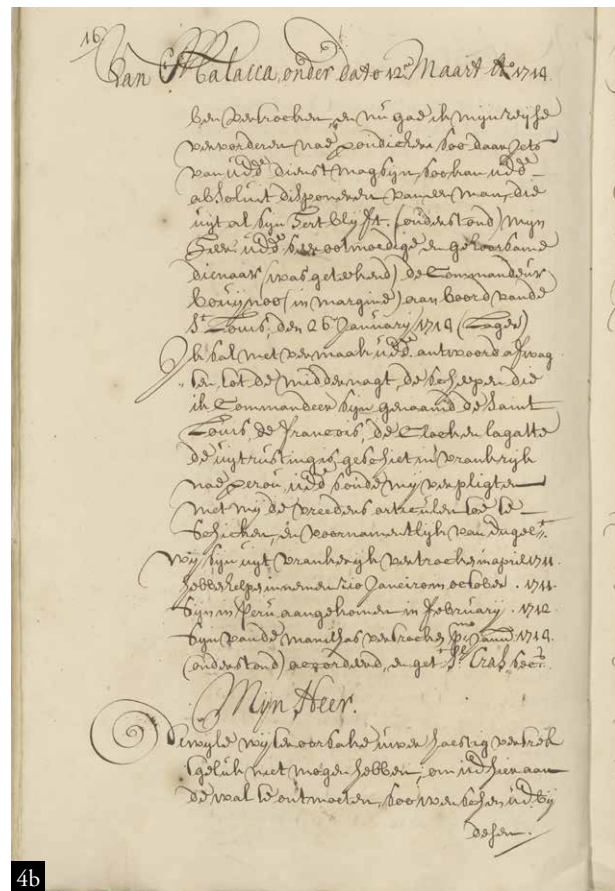 16
Van Malacca, onder dato 12e Maart Ao 1714
ben vertrocken, en nu gae ik mijn reijse
vervorderen nae poindicherij soo daar jets
van udE dienst mag sijn, soo kan udE
absoluit disponeren van een man, die
uijt al sijn Hert blijft. (onderstond) mijn
Heer udE seer ootmoedige en gehoorsame
dienaar (was getekend) de Commandeur
bouijnoo (in margine) aan boord vande
St. Louis, den 26e Januarij 1714 (Lager)
Ik sal met vermaak udE antwoord afwag
ten, tot de middernagt, de scheepen die
ik Commandeer sijn genaamd de Saint
Louis, de francois, de
de uijtrusting is geschiet in vrankrijk
nae perou, udE soude mij verpligten
met mij de vreedens articulen toe te
schicken, en voornamentlijk van Engelt.
wij sijn uijt vrankrijk vertrocken in april 1711.
hebbe helpe innemen rio Janeiro in october. 1711.
sijn in Peru aangekomen in february. 1712.
sijn van de manilhas vertrocken pmo Janu 1714.
(onderstond) accordeerd, en get. Cras secrs.
Mijn Heer.
Dewijle wij ter oorsake uwer haestig vertrek
t geluk niet mogen hebben, om udE hier aan
de wal te ontmoeten, soo wenschen udE bij
desen
4b